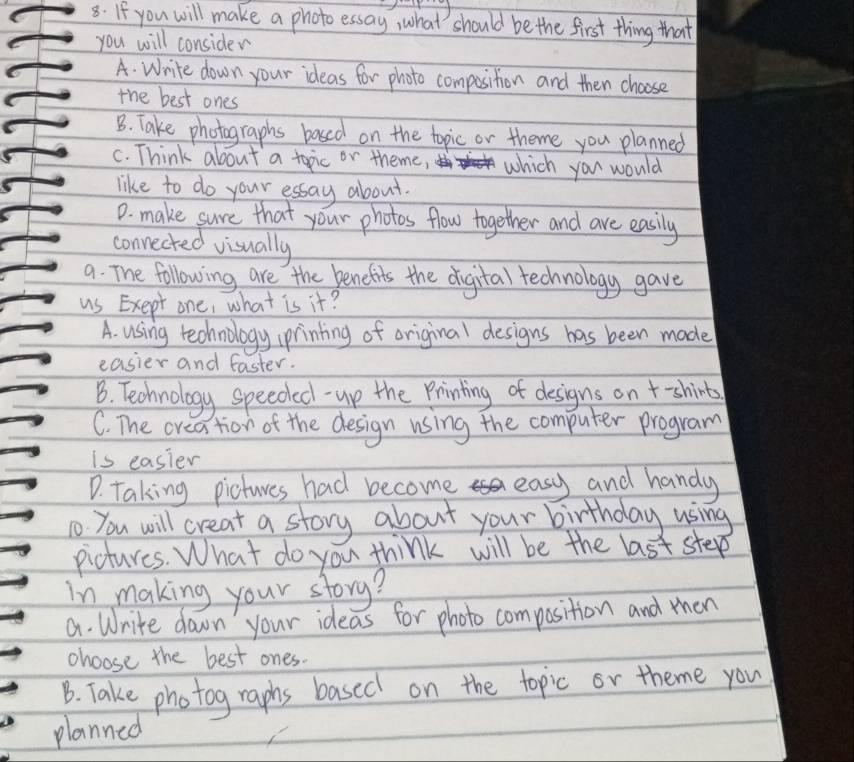 8. If you will make a photo essay, what should be the first thing that
you will consider
A. Write down your ideas for photo composition and then choose
the best ones
B. Take photographs based on the topic or theme you planned
C. Think about a topic or theme, which you would
like to do your essay about.
D. make sure that your photos flow together and are easily
connected visually
9. The following are the benefits the digital technology gave
us Exept one, what is it?
A. using technology, printing of original designs has been made
easier and faster.
B. Technology speeded-up the Printing of designs on t-shirts.
C. The creation of the design using the computer program
is easier
D. Taking pictures had become easy and handy
10. You will creat a story about your birthday using
pictures. What do you think will be the last step
in making your story?
a. Write down your ideas for photo composition and then
choose the best ones.
B. Take photographs based on the topic or theme you
planned